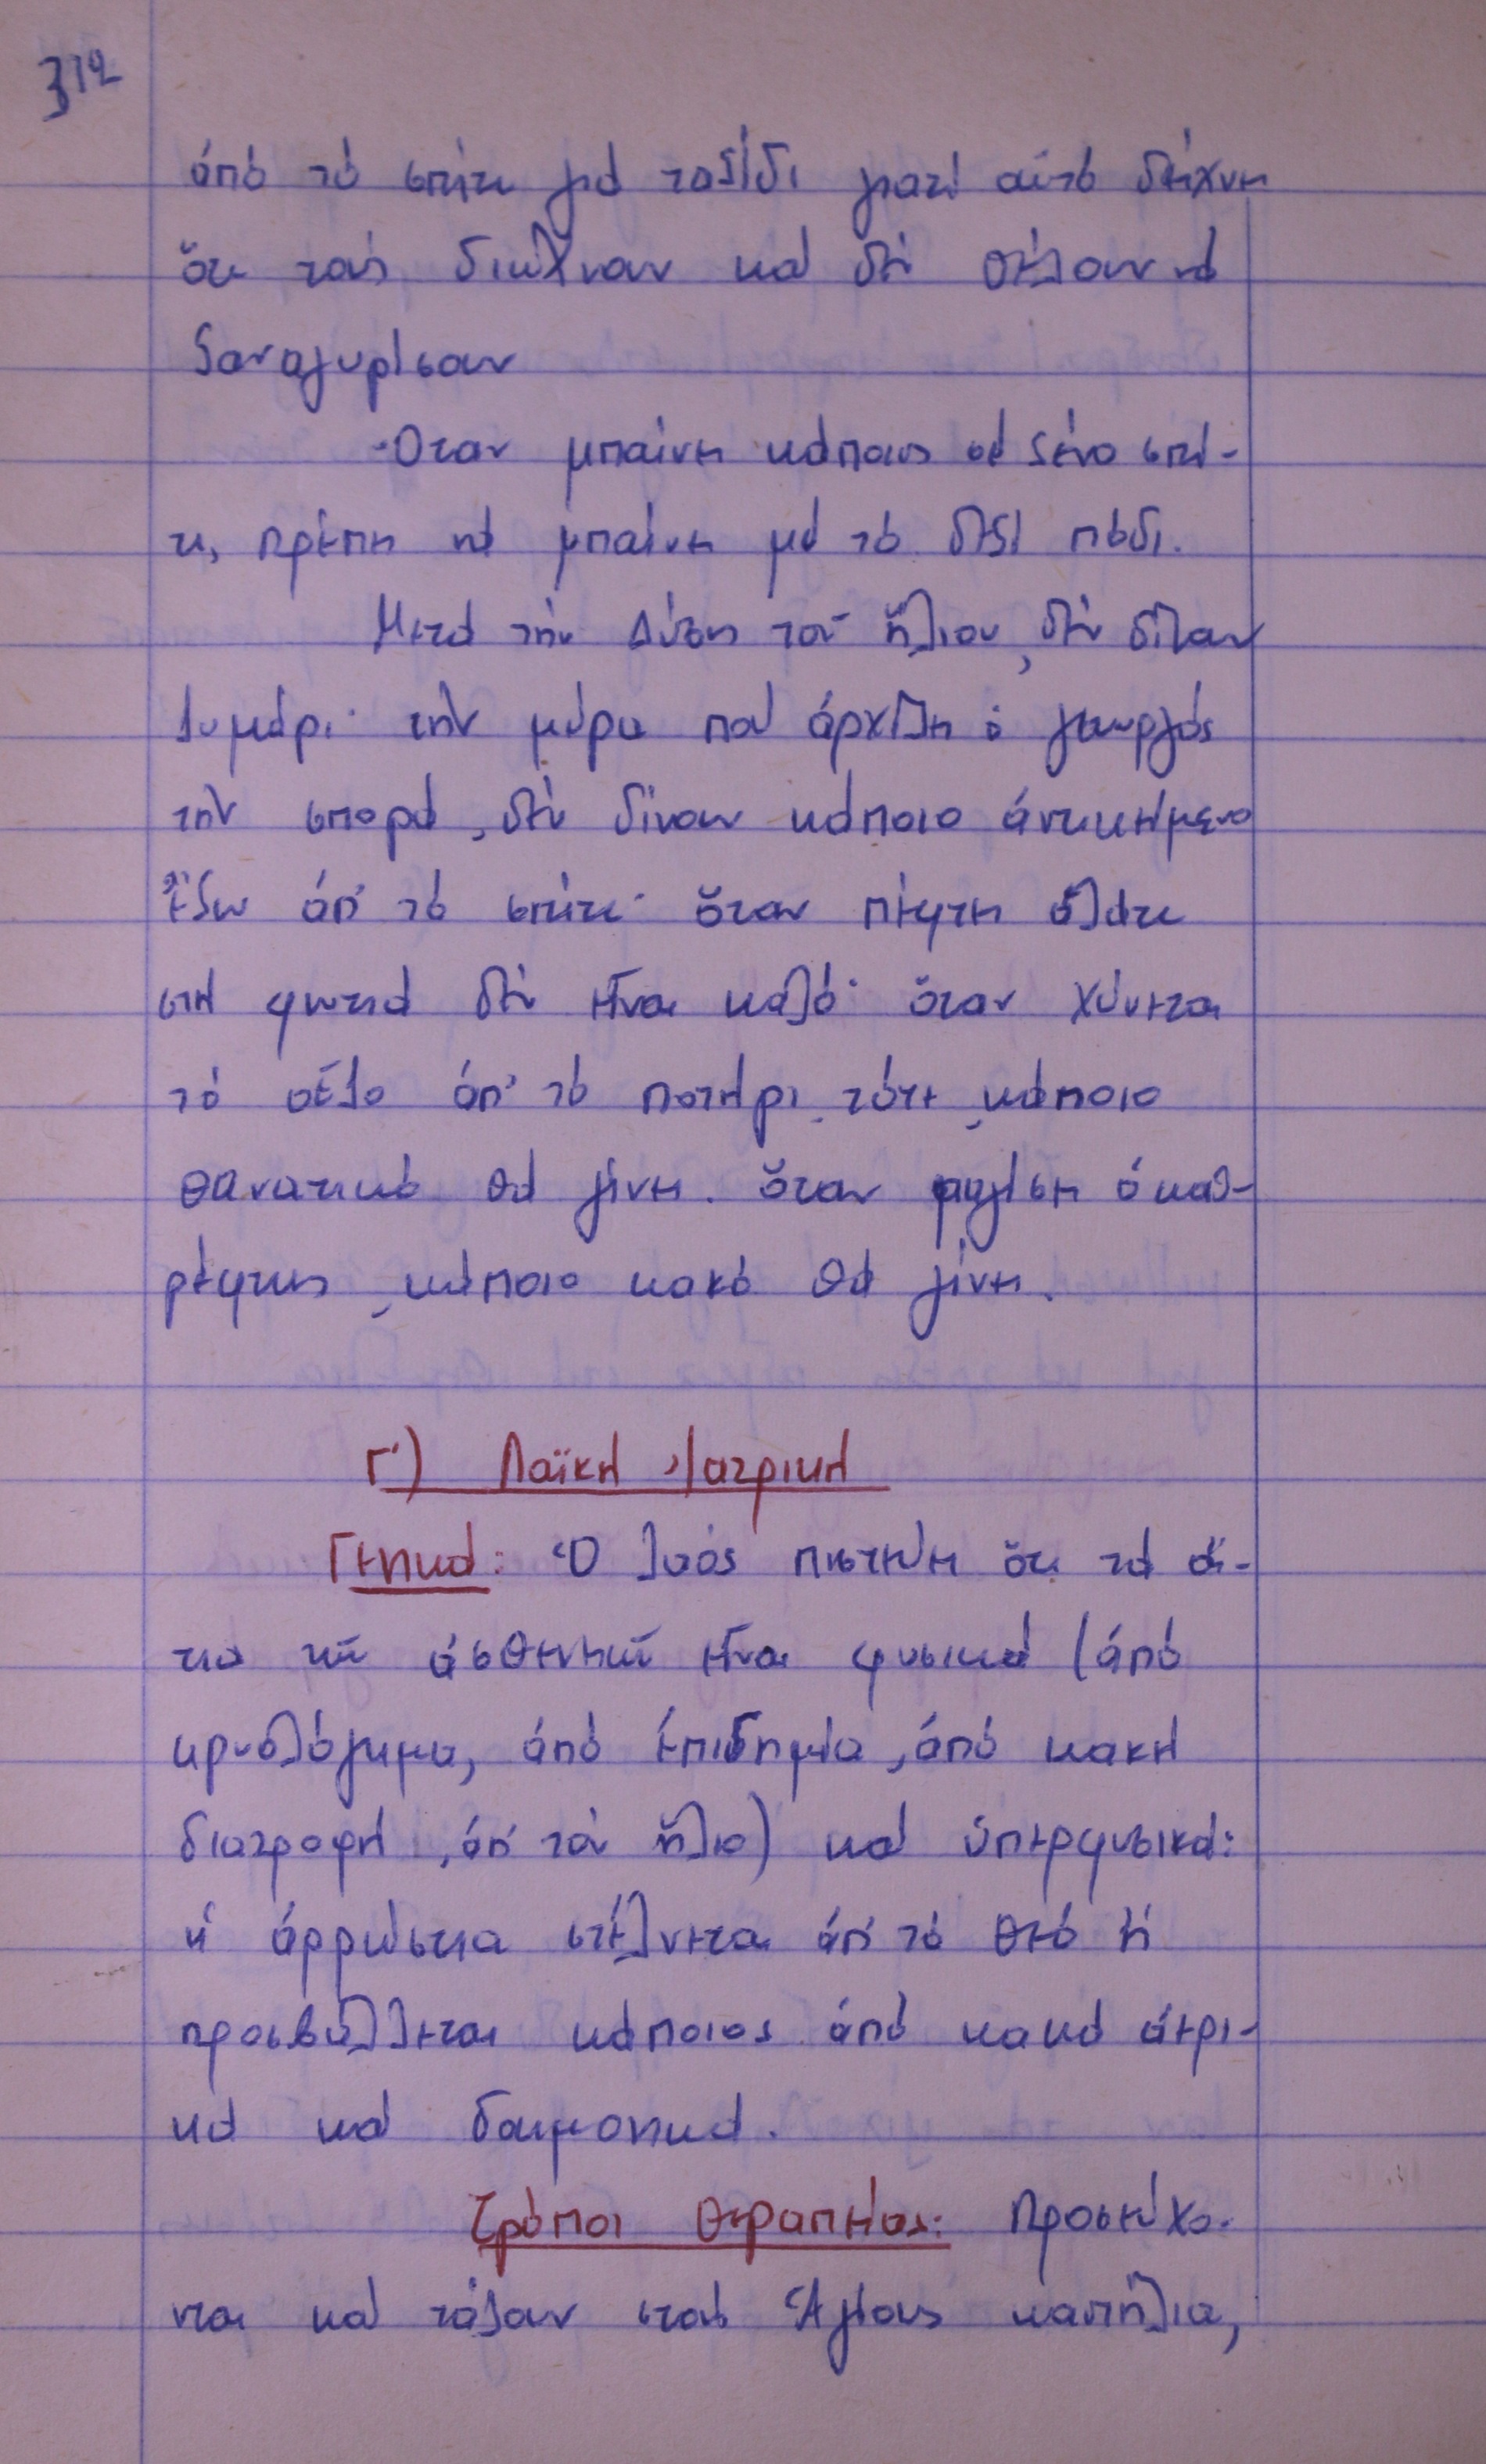 312
ἀπό τό σπίτι γιά ταξίδι γιατί αὐτό δείχνει
ὅτι τούς διώχνουν καί δέν θέλουν νά
ξαναγυρίσουν
Ὅταν μπαίνει κάποιος σέ ξένο σπί-
τι, πρέπει νά μπαίνει μέ τό δεξί πόδι.
Μετά τήν Δύση τοῦ ἥλιου, δέν δίναν
προζύμι· τήν μέρα πού ἀρχίζει ὁ γεωργός
τήν σπορά, δέν δίνουν κάποιο ἀντικείμενο
ἔξω ἀπ' τό σπίτι· ὅταν πέφτει ἁλάτι
στή φωτιά δέν εἶναι καλό· ὅταν χύνεται
τό ἀπ' τό ποτήρι, τότε, κάποιο
θανατικό θά γίνει. ὅταν ραγίσει ὁ καθ-
ρέφτης, κάποιο κακό θά γίνει.
Γ') Λαϊκή Ἰατρική
Γενικά: Ὁ λαός πιστεύει ὅτι τά αἴ-
τια τῶν ἀσθενειῶν εἶναι φυσικά (ἀπό
κρυολόγημα, ἀπό ἐπιδημία, ἀπό κακή
διατροφή, ἀπ' τόν ἥλιο) καί ὑπερφυσικά:
ἡ ἀρρώστια στέλνεται ἀπ' τό Θεό ἤ
προσβάλλεται κάποιος ἀπό κακά ἀερι-
κά καί δαιμονικά.
Τρόποι θεραπείας: Προσεύχο-
νται καί τάζουν στούς Ἁγίους καντήλια,